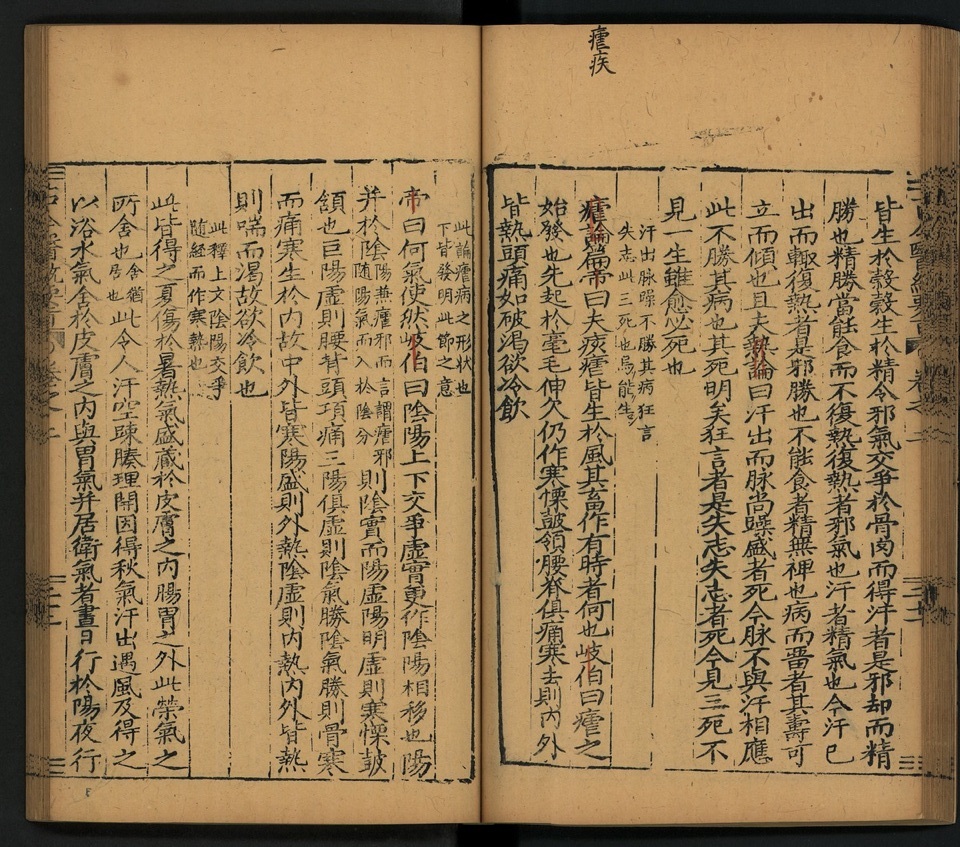 瘧疾
皆生於穀穀生於精今邪氣交爭於骨肉而得汗者是邪却而精
勝也精勝當能食而不復熱復熱者邪氣也汗者精氣也今汗
出而輙復熱者是邪勝也不能食者精無裨也病而畱者其壽可
立而傾也且夫熱論曰汗出而脉尚躁盛者死今脉不與汗相應
此不勝其病也其死明矣狂言者是失志失志者死今見三死不
見一生雖愈必死也
汗出脉躁不勝其病狂言
失志此三死也烏能生
瘧論篇帝曰夫痎瘧皆生於風其畜作有時者何也岐伯曰瘧之
始發也先起於毫毛伸欠仍作寒慄鼓頷腰脊俱痛寒去則內外
皆熱頭痛如破渴欲冷飲
此論瘧病之形狀也
下皆發明此節之意
帝曰何氣使然岐伯曰陰陽上下交爭虛實更作陰陽相移也陽
并於陰陽兼瘧邪而言謂瘧邪
隨陽氣而入於陰分則陰實而陽虛陽明虛則寒慄鼓
頷也巨陽虛則腰背頭項痛三陽俱虛則陰氣勝陰氣勝則骨寒
而痛寒生於內故中外皆寒陽盛則外熱陰虛則內熱內外皆熱
則喘而渴故欲冷飲也
此釋上文陰陽交爭
隨經而作寒熱也
此皆得之夏傷於暑熱氣盛藏於皮膚之內腸胃之外此榮氣之
所舍也舍猶
居也此令人汗空疎腠理開因得秋氣汗出遇風及得之
以浴水氣舍於皮膚之內與胃氣并居衛氣者晝日行於陽夜行